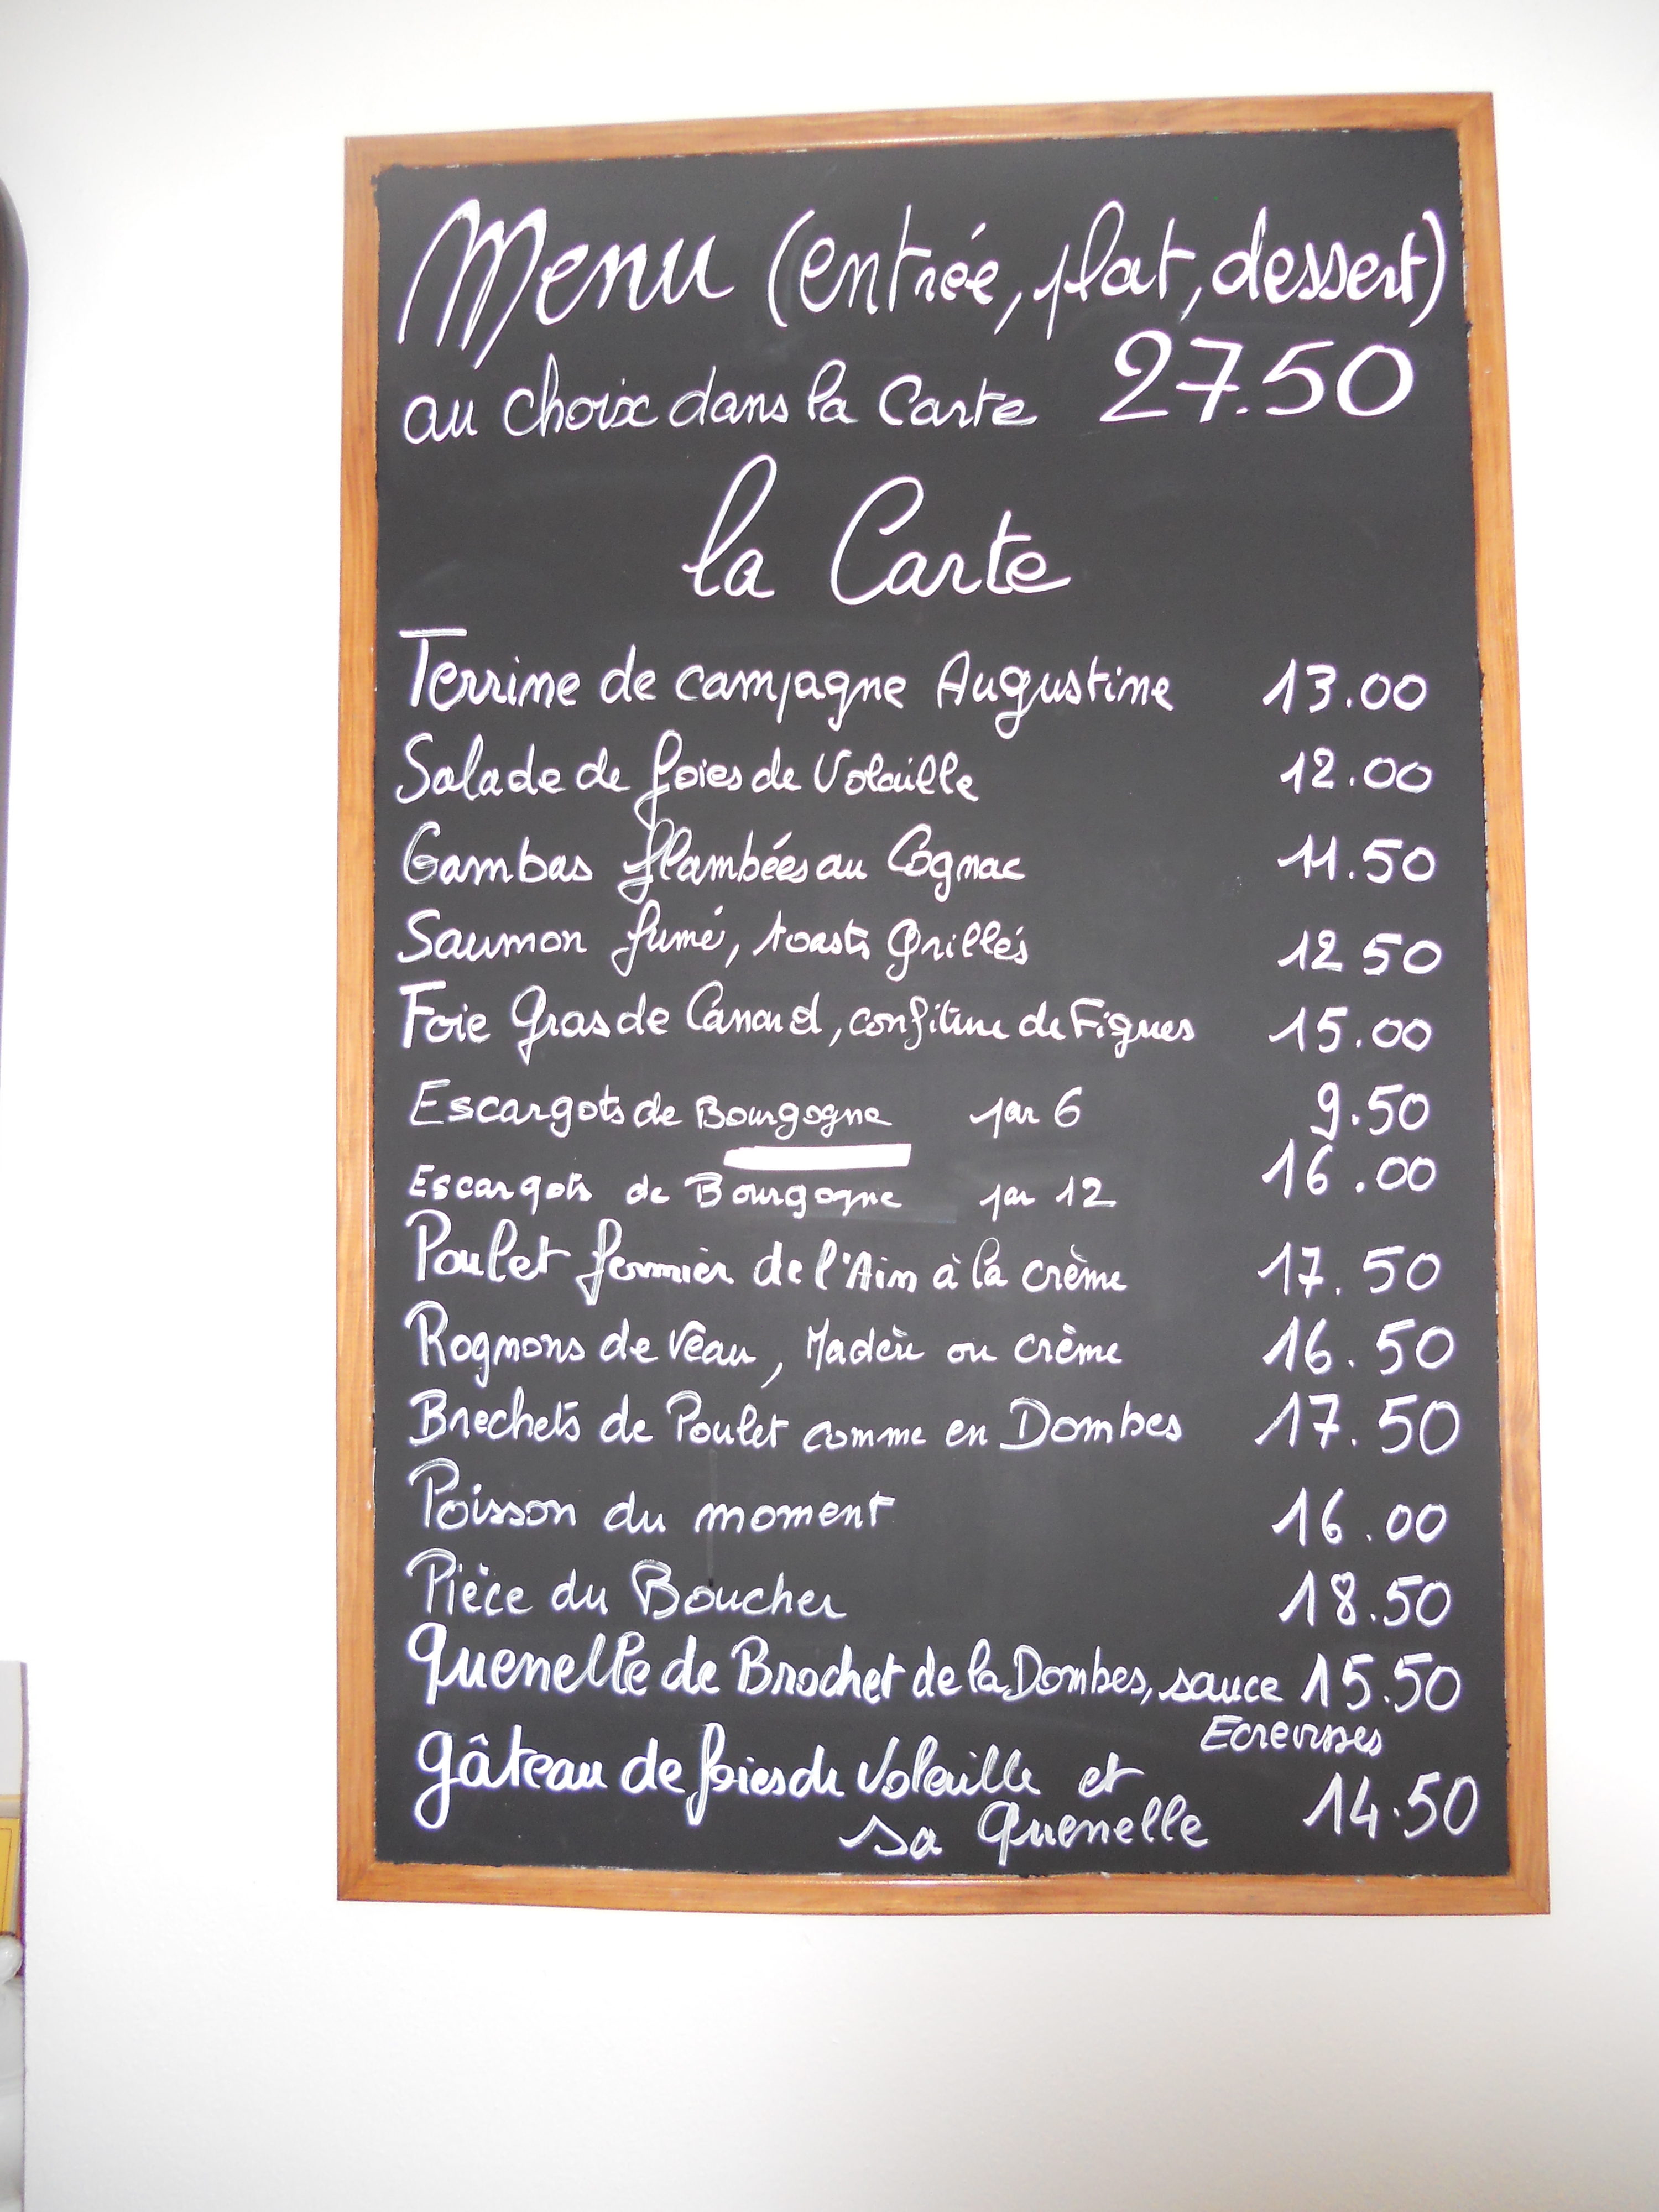 Menu (entrée, plat, dessert)
au choix dans la Carte 27.50
la Carte
Terrine de campagne Augustine 13.00
Salade de foies de Volaille 12.00
Gambas flambées au Cognac 11.50
Saumon fumé, toasts Grillés 12 50
Foie Gras de Canard, confiture de Figues 15.00
Escargots de Bourgogne par 6 9.50
Escargots de Bourgogne par 12 16.00
Poulet fermier de l'Ain à la crème 17.50
Rognons de Veau, Madère ou crème 16.50
Brechets de Poulet comme en Dombes 17.50
Poisson du moment 16.00
Pièce du Boucher 18.50
Quenelle de Brochet de la Dombes, sauce 15.50
Ecrevisses
gâteau de foies de Volaille et
sa Quenelle 14.50